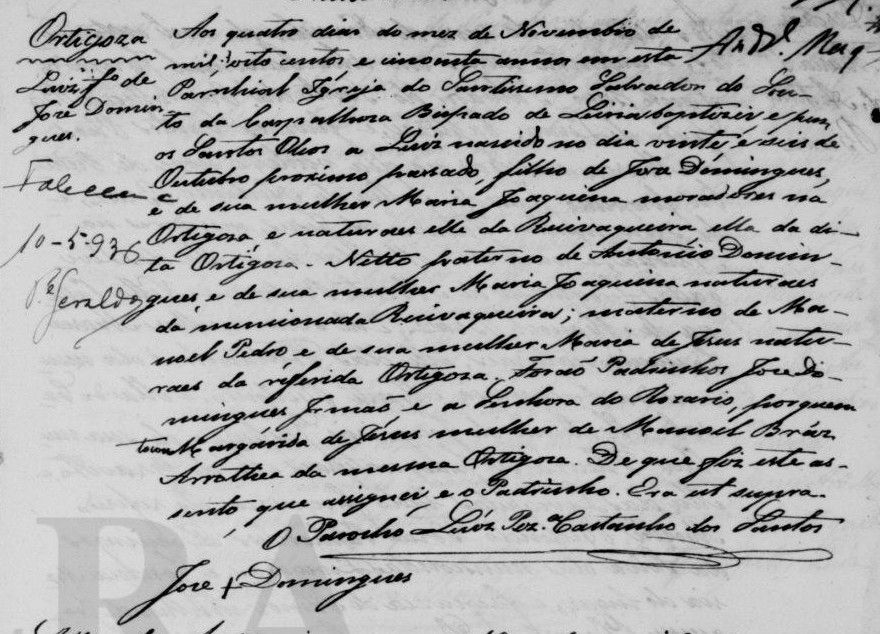 Ortigoza
Luiz fº de
Joze Domin
gues.
Faleceu
10-5-936
Pe. Geraldo
Aos quatro dias do mez de Novembro de
mil oito centos e cincoenta annos em esta
Parochial Igreja do Santissimo Salvador do Sou-
to da Carpalhoza Bispado de Leiria baptizei e puz
os Santos Oleos a Luiz nascido no dia vinte e seis de
Outubro proximo passado, filho de Joze Domingues,
e de sua mulher Maria Joaquina moradores na
Ortigoza e naturaes elle da Ruivaqueira ella da di-
ta Ortigoza. Netto paterno de Antonio Domin-
gues e de sua mulher Maria Joaquina naturaes
da mencionada Ruivaqueira; materno de Ma-
noel Pedro e de sua mulher Maria de Jesus natu-
raes da referida Ortigoza. Foraõ Padrinhos Joze Do-
mingues Irmaõ e a Senhora do Rozario, por quem
tocou Margarida de Jesus mulher de Manoel Bráz
da mesma Ortigoza. De que fiz este as-
sento que assignei e o Padrinho. Era ut supra.
O Parocho Luiz Per.ª Castanho dos Santos
Joze + Domingues